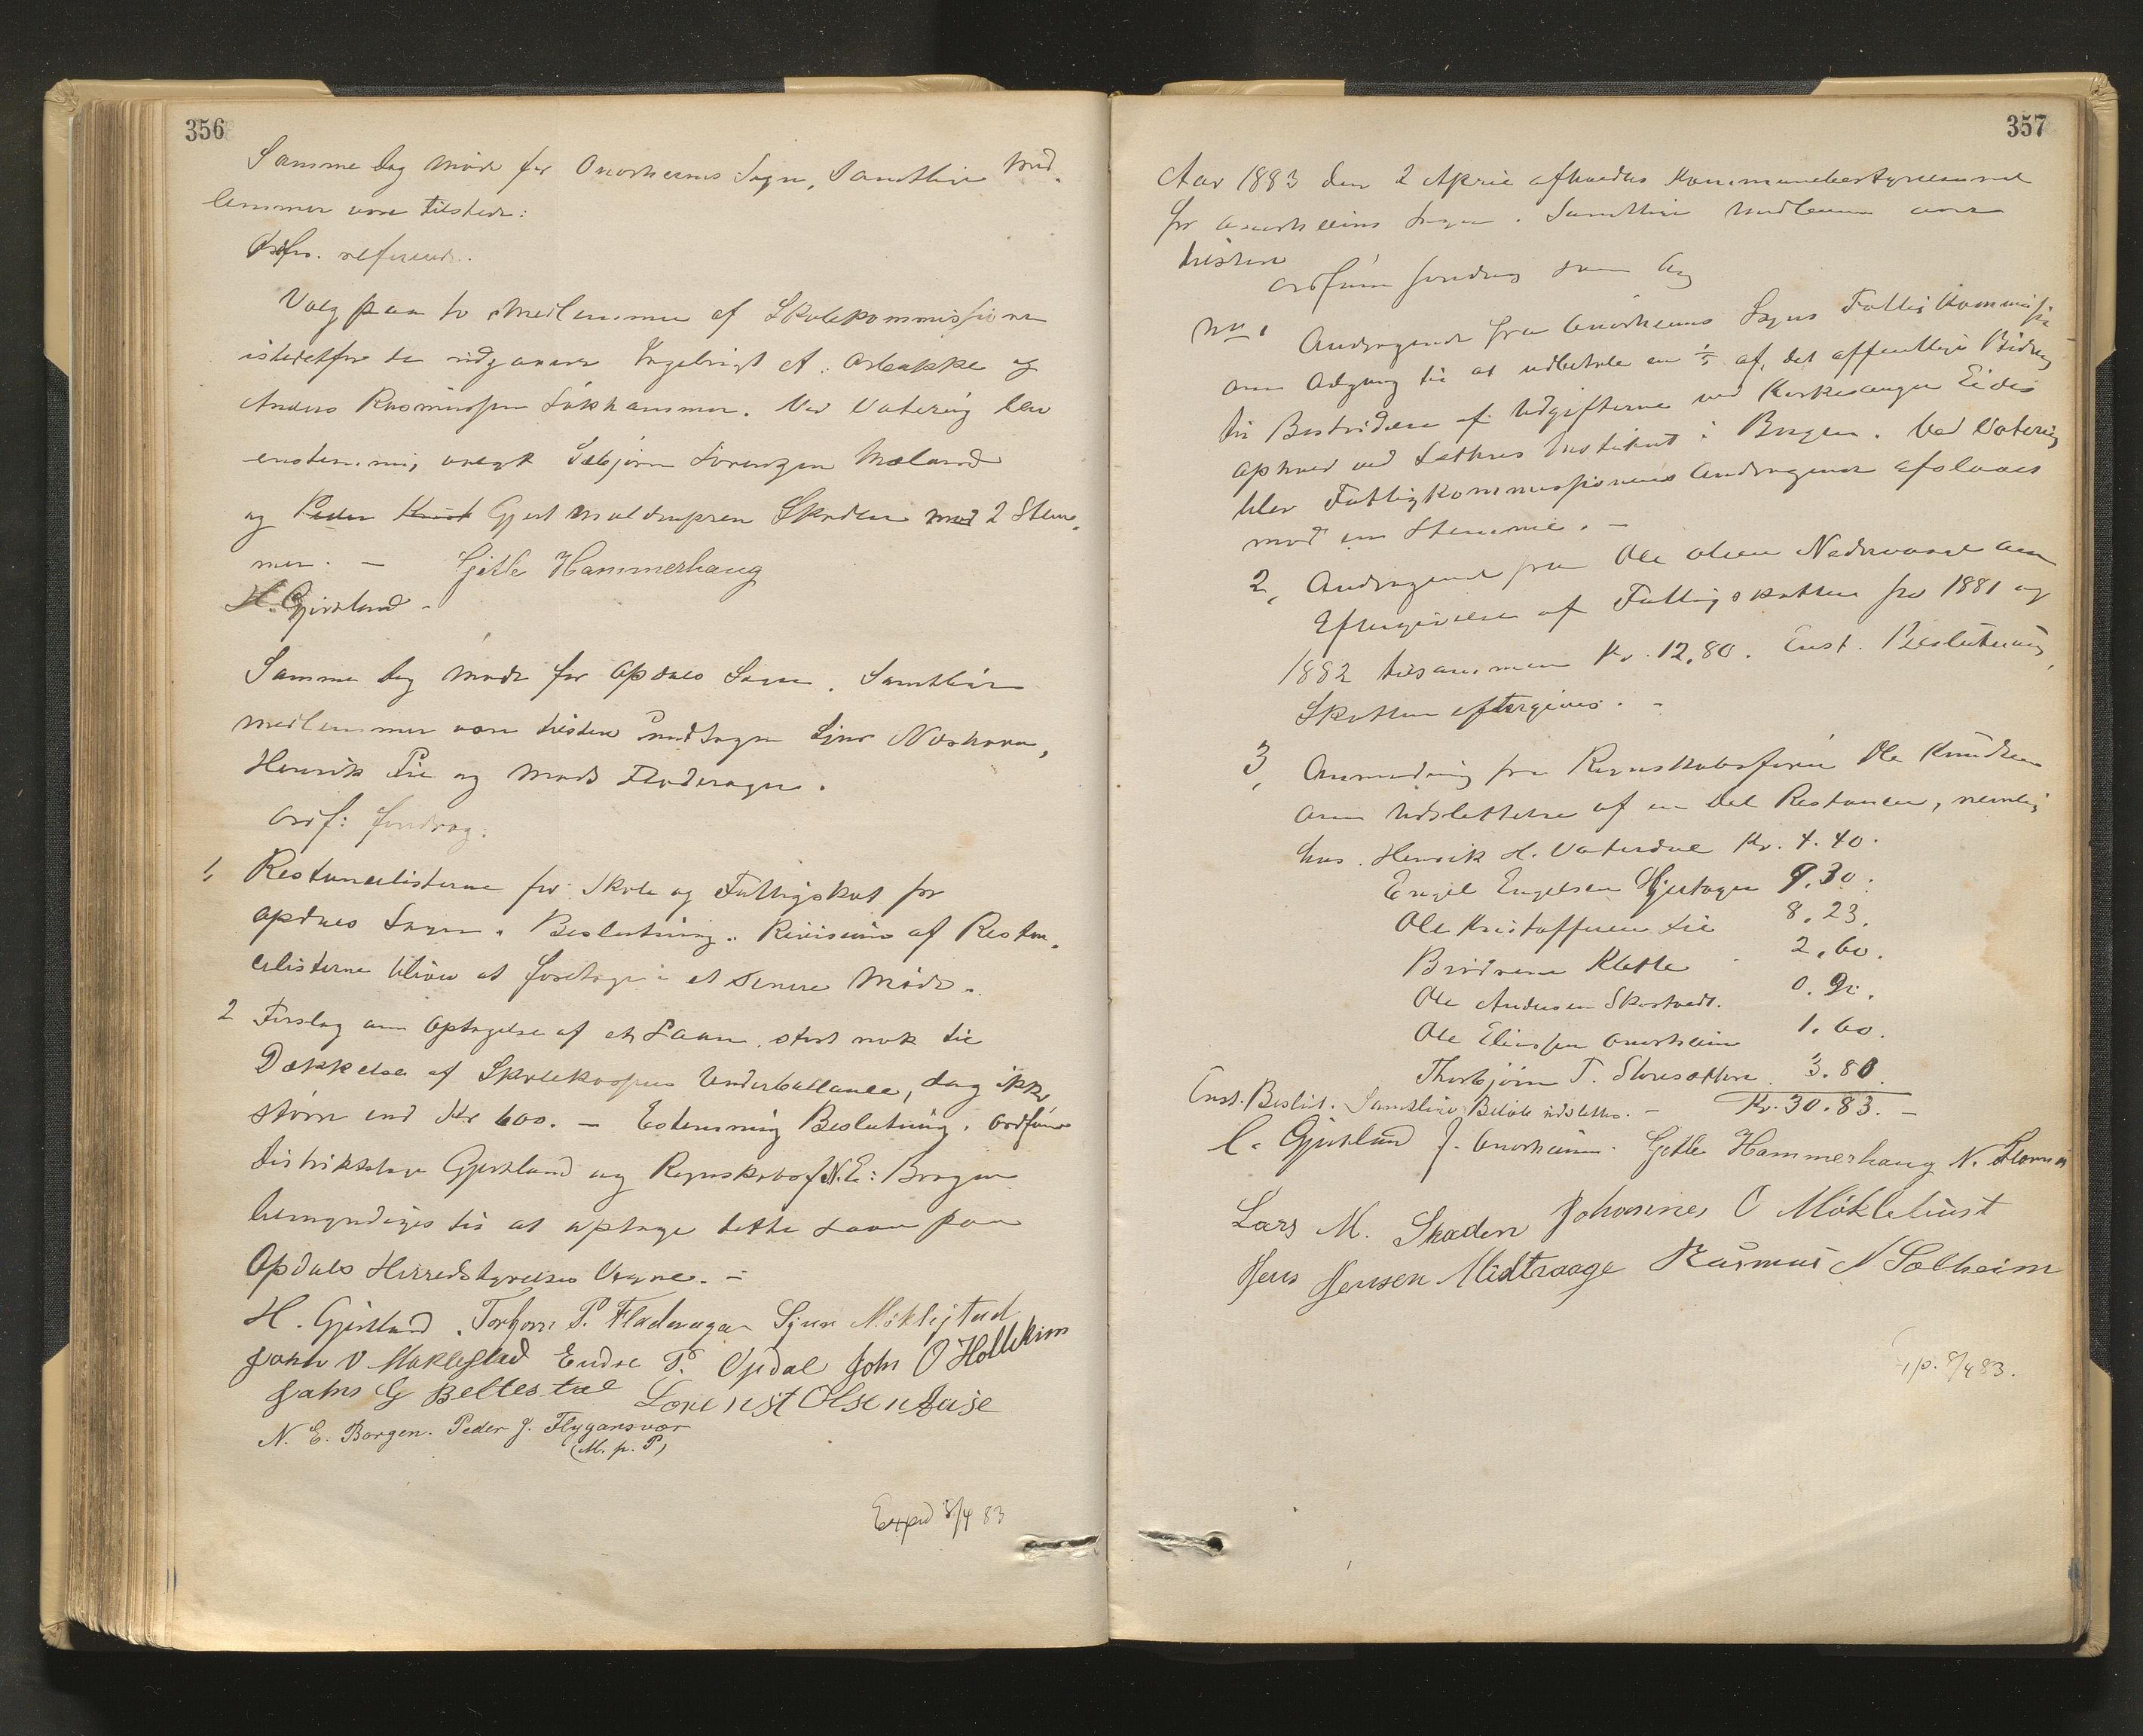 356
Samme Dag Møde for Onarheims Sogn, Samtlige Med-
lemmer vare tilstede:
Ordfør. refererede.
Valg paa to Medlemmer af Skolekommissionen
istedetfor de udgaaende Ingebrigt A. Orbække og
Anders Rasmussen Løkhammer. Ved Votering blev
enstemmig valgt Sæbjørn Lorenzen Mæland
og Peder Knut Gjert Maldrupsen Skaden med 2 Stem-
mer. — Gjetle Hammerhaug
H. Gjersland -
Samme Dag Møde for Opdals Sogn. Samtlige
Medlemmer vare tilstede undtagen Sjur Næshavn,
Henrik Lie og Mads Fladeragen.
Ordf: foredrog:
1, Restancelisterne for Skole og Fattigskat for
Opdals Sogn. Beslutning. Revision af Restan-
celisterne bliver at foretage i et senere Møde.
2 Forslag om Optagelse af et Laan stort nok til
Dækkelse af Skolekassens Underballance, dog ikke
større end Kr 600. — Estemmig Beslutning. Ordfører
Distriktslæge Gjersland og Regnskabsf. N. E: Borgen
bemyndiges til at optage dette Laan paa
Opdals Herredstyrelses Vegne. —
H. Gjersland. Torbjørn P. Fladeragen Sjur Møklejstad
John O Møklestad Endre P. Opdal John O Hollekim
Jahs G Beltestad Lorenst Olsen Aase
N. E. Borgen. Peder J. Flygansvær
(M. p. P)
Exped 8/4 83
357
Aar 1883 den 2 April afholdtes Kommunebestyrelsesmøde
for Onarheims Sogn. Samtlige Medlemmer vare
tilstede
Ordføreren foredrog som Sag
No 1 Andragende fra Onarheims Sogns Fattigkommission
om Adgang til at udbetale en 1/5 af det offentlige Bidrag
til Bestridelse af Udgifterne ved Kirkesanger Eides
Ophold ved Lethes Institut i Bergen. Ved Votering
blev Fattigkommissionens Andragende afslaaet
mod en Stemme. —
2, Andragende fra Ole Olsen Nedrevaage om
Eftergivelse af Fattigskatten for 1881 og
1882 tilsammen Kr. 12,80. Enst. Beslutning,
Skatten eftergives. -
3, Anmodning fra Regnskabsfører Ole Knudsen
om Udslettelse af en Del Restancer, nemlig
hos. Henrik H. Vaterdal Kr. 4.40.
Engel Engelsen Hjertager 9.30.
Ole Kristoffersen Lie 8.23.
Brødrene Klette 2.60.
Ole Andersen Skartvedt. 0.90.
Ole Eliassen Onarheim 1.60.
Thorbjørn T. Storesætter 3.80.
Enst. Beslut. Samtlige Beløb udslettes. — Kr. 30.83. —
C. Gjersland J. Onarheim. Gjetle Hammerhaug N.
Lars M. Skaden Johannes O Møklebust
Jens Jensen Midtvaage Rasmus N Solheim
Exp. 8/4 83.